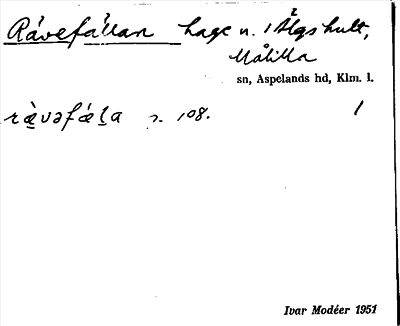 Rävefällan hage n. i Älgshult,
Målilla
sn, Aspelands hd, Klm. l.
rὰ̱vəfǽḻa s. 108. 1
Ivar Modéer 1951